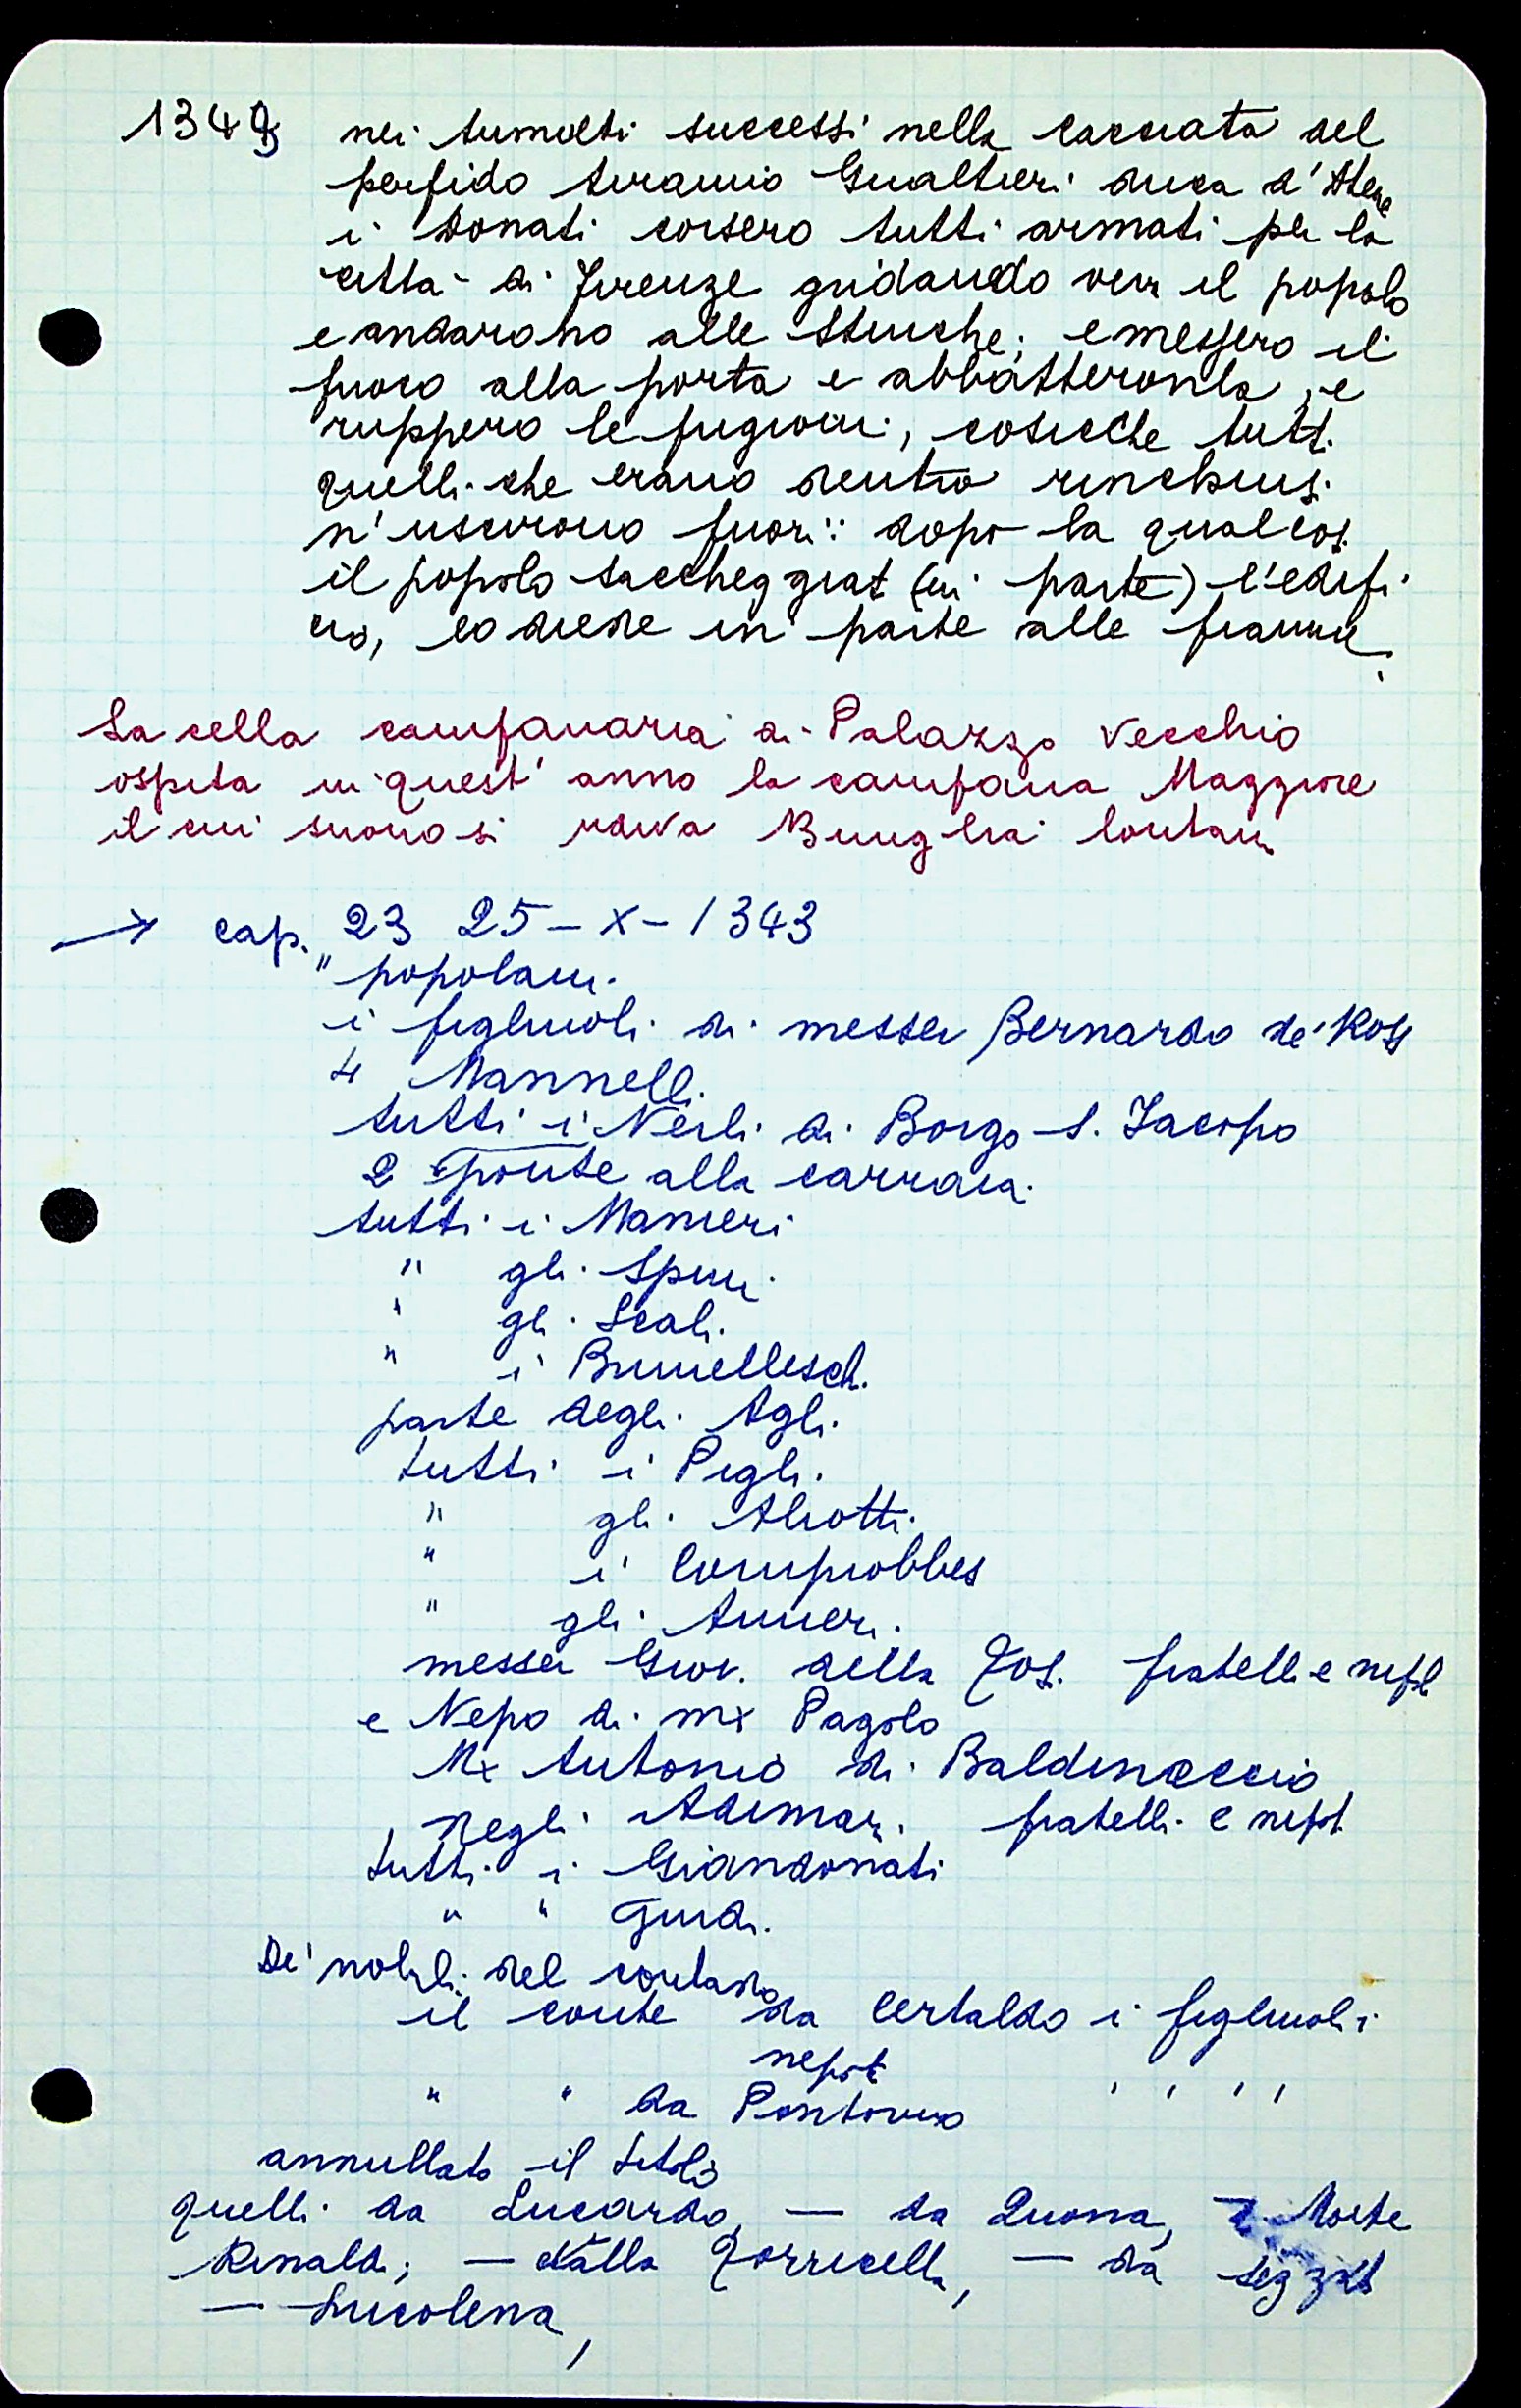 1343 nei tumulti successi nella cacciata del
perfido tiranno Gualtieri duca d'Atene
i Donati corsero tutti armati per la
città di Firenze gridando viva il popolo
e andarono alle Stinche; e messero il
fuoco alla porta e abbatteronla, e
ruppero le prigioni, cosicche tutti
quelli che erano dentro rinchiusi
n'uscirono fuori: dopo la qual cosa
il popolo saccheggiat (in parte) l'edifi
cio, lo diede in parte alle fiamme.
La cella campanaria di Palazzo Vecchio
ospita in quest'anno la campana Maggiore
il cui suono si udiva miglia lontan
→ cap. 23 25-X-1343
" popolani
i figliuoli di messer Bernardo de' Rossi
4 Mannelli
tutti i Nerli di Borgo S. Jacopo
2 ponte alla carraia
tutti i Manieri
" gli Spini
" gli Scali
" i Brunelleschi
parte degli Agli
tutti i Pigli
" gli Aliotti
" i Compiobbesi
" gli Amieri
messer Giov. della Tosa fratelli e nepoti
e Nepo di mx Pagolo
Mx Antonio di Baldinaccio
negli Adimari fratelli e nepot
tutti i Giandonati
" " Guidi
De' nobili del contado
il conte da Certaldo i figliuoli i
nepoti
" " da Pontormo ' ' ' '
annullato il titolo
quelli da Lucardo, — da Quona, Monte
Rinaldi; — dalla Torricella, — da Sezzata
— Lucolena,